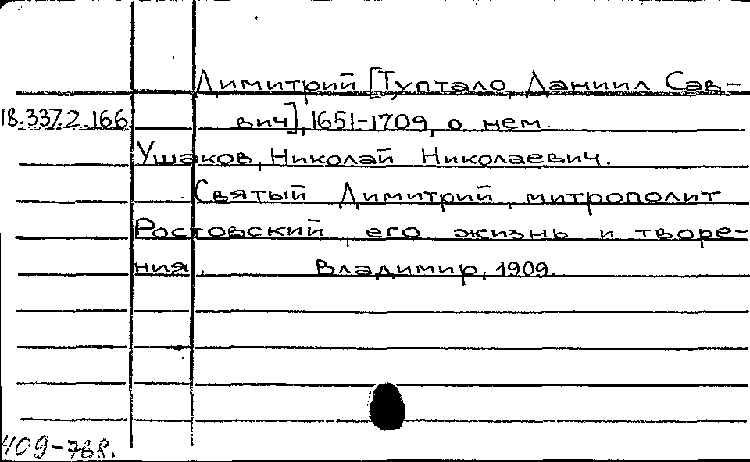 Димитрий [Туптало, Даниил Сав-
18.337.2.166 вич], 1651-1709, о нем.
Ушаков, Николай Николаевич.
Святый Димитрий, митрополит
Ростовский, его жизнь и творе-
ния. Владимир, 1909.
409-768.